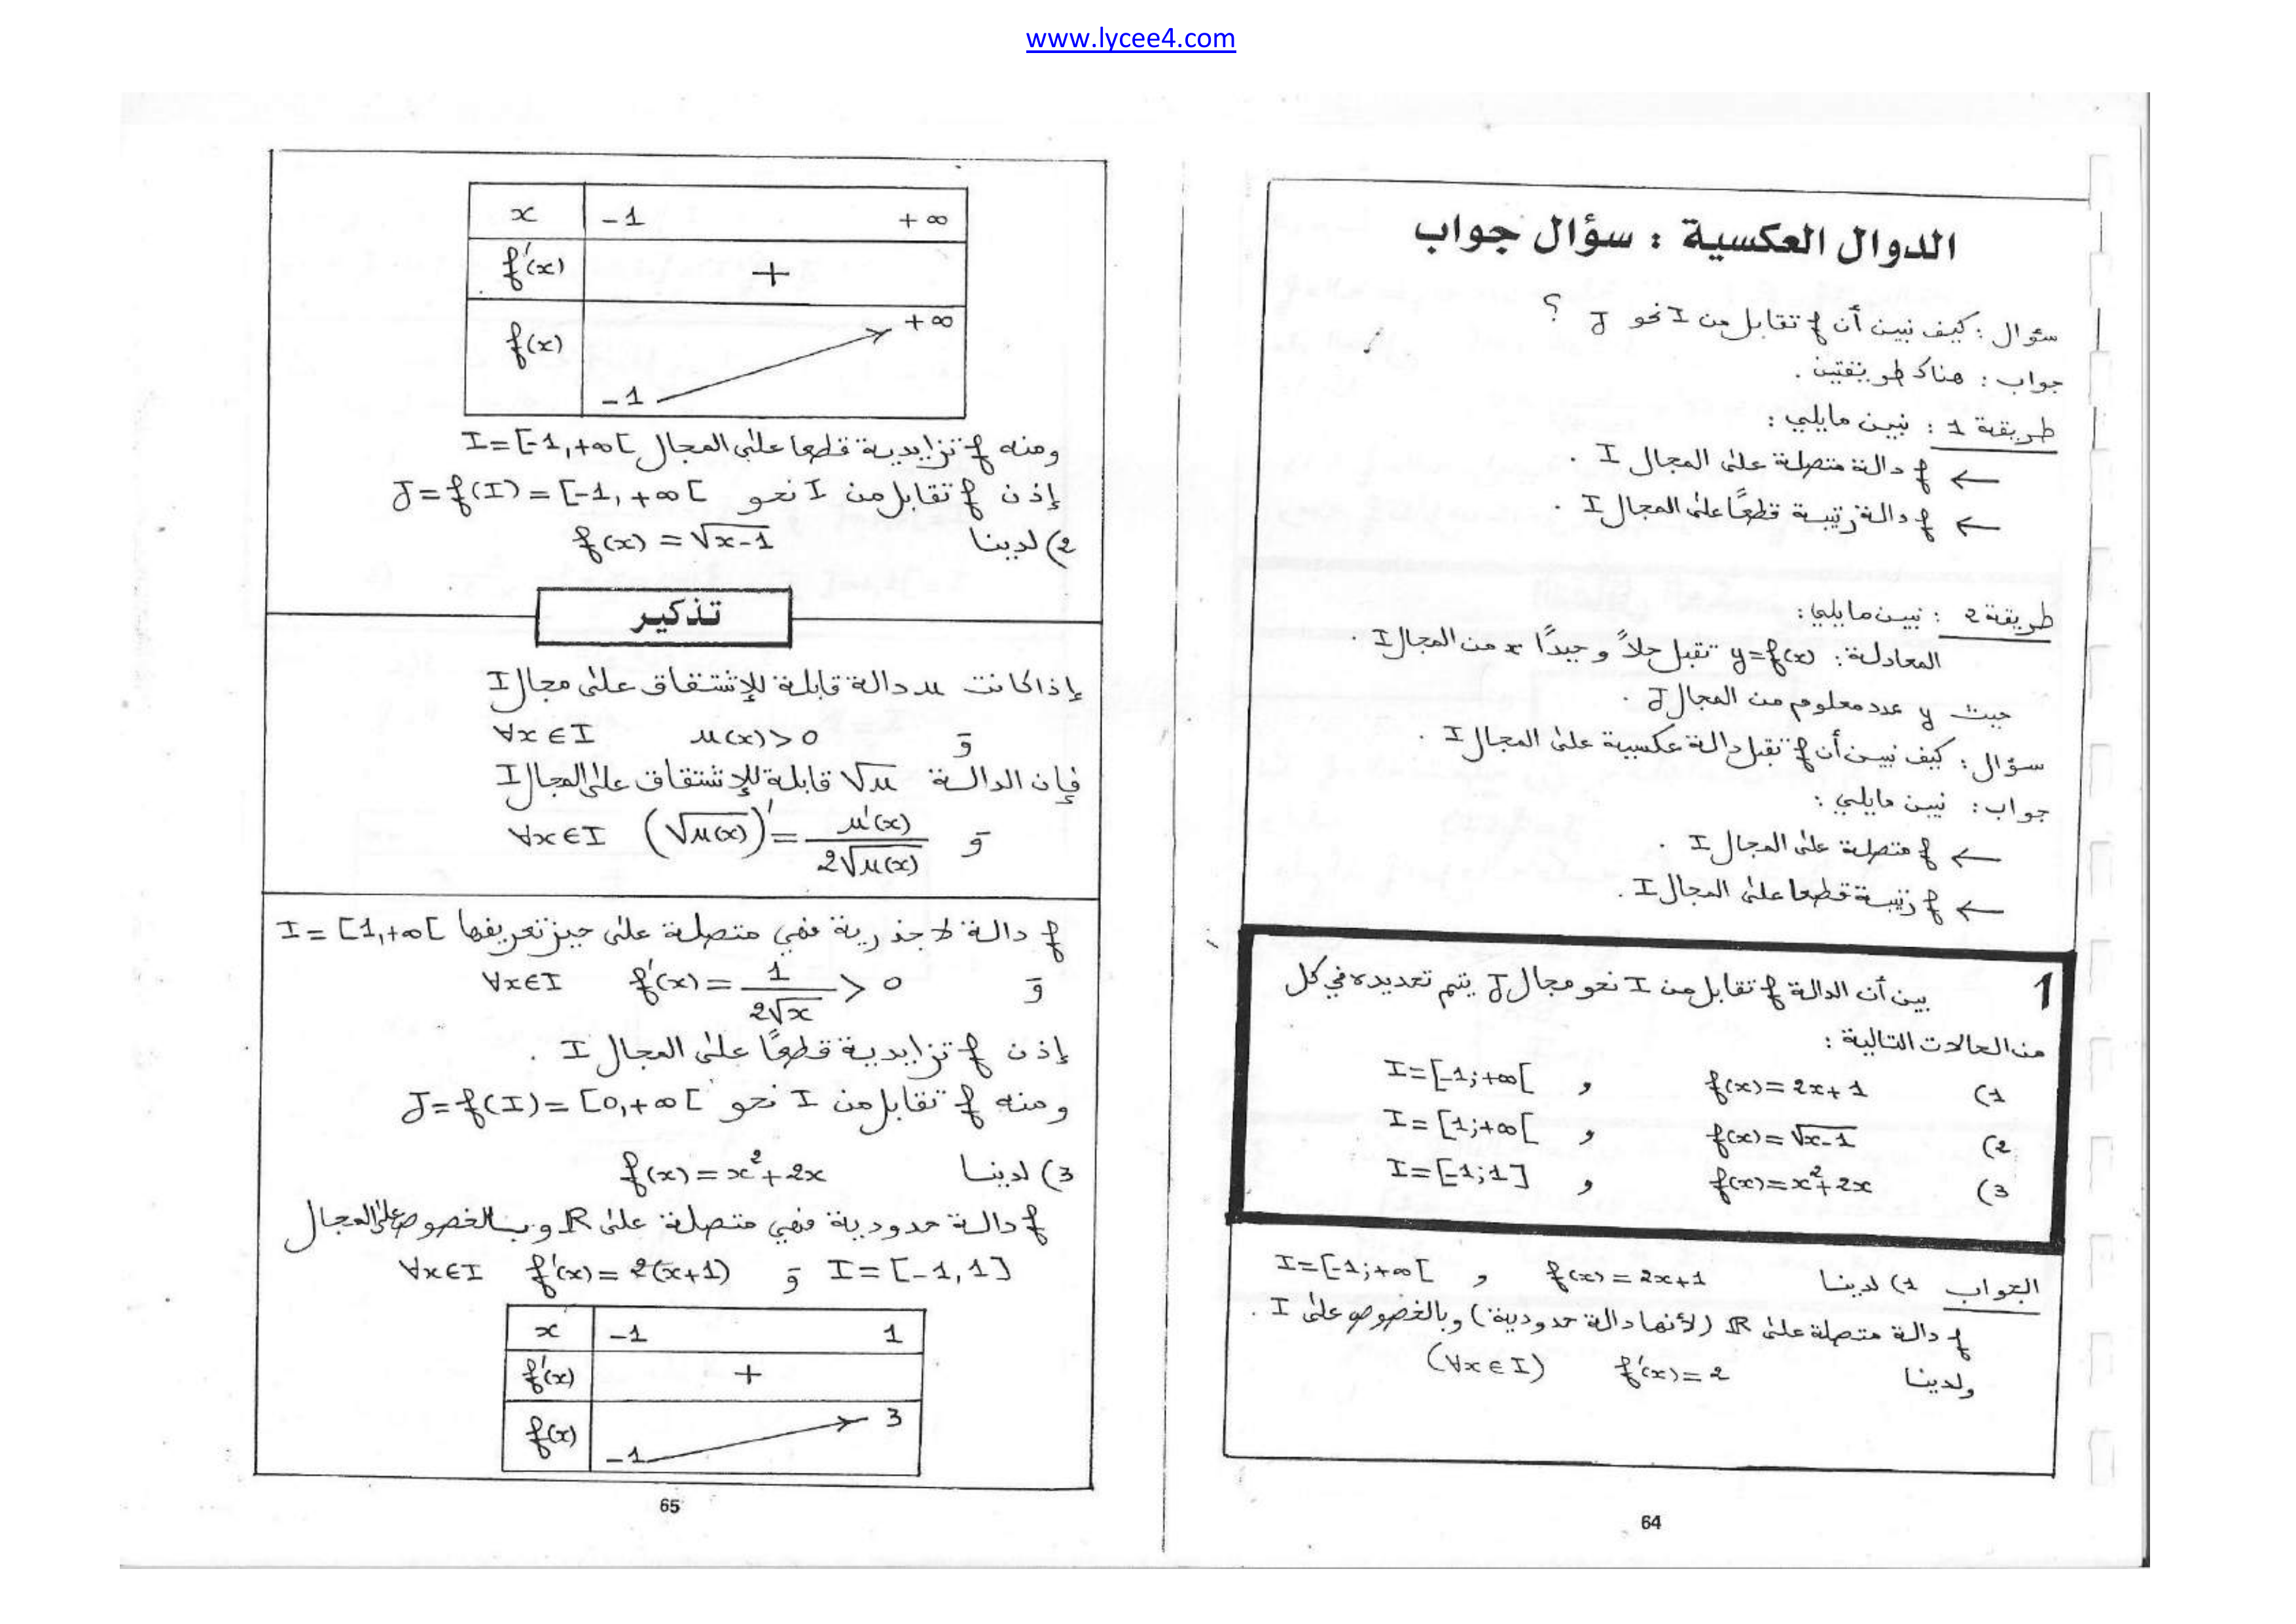 www.lycee4.com
الدوال العكسية : سؤال جواب
سؤال : كيف نبين أن f تقابل من I نحو J ؟
جواب : هناك طريقتين .
طريقة 1 : نبين مايلي :
← f دالة متصلة على المجال I .
← f دالة رتيبة قطعًا على المجال I .
طريقة 2 : نبين مايلي :
المعادلة : y=f(x) تقبل حلاً وحيدًا x من المجال I .
حيث y عدد معلوم من المجال J .
سؤال : كيف نبين أن f تقبل دالة عكسية على المجال I .
جواب : نبين مايلي :
← f متصلة على المجال I .
← f رتيبة قطعا على المجال I .
1 بين أن الدالة f تقابل من I نحو مجال J يتم تحديده في كل
من الحالات التالية :
1) f(x)=2x+1 , I=[-1;+∞[
2) f(x)=√(x-1) , I=[1;+∞[
3) f(x)=x²+2x , I=[-1;1]
الجواب 1) لدينا f(x)=2x+1 , I=[-1;+∞[
f دالة متصلة على ℝ (لأنها دالة حدودية) وبالخصوص على I .
ولدينا f'(x)=2 (∀x∈I)
64
x -1 +∞
f'(x) +
f(x) -1 +∞
ومنه f تزايدية قطعا على المجال I=[-1,+∞[
إذن f تقابل من I نحو J=f(I)=[-1,+∞[
2) لدينا f(x)=√(x-1)
تذكير
إذا كانت u دالة قابلة للإشتقاق على مجال I
و u(x)>0 ∀x∈I
فإن الدالة √u قابلة للإشتقاق على المجال I
و (√u(x))'=u'(x)/(2√u(x)) ∀x∈I
f دالة جذرية فهي متصلة على حيز تعريفها I=[1,+∞[
و f'(x)=1/(2√x)>0 ∀x∈I
إذن f تزايدية قطعًا على المجال I .
ومنه f تقابل من I نحو J=f(I)=[0,+∞[
3) لدينا f(x)=x²+2x
f دالة حدودية فهي متصلة على ℝ وبالخصوص على المجال
I=[-1,1] و f'(x)=2(x+1) ∀x∈I
x -1 1
f'(x) +
f(x) -1 3
65